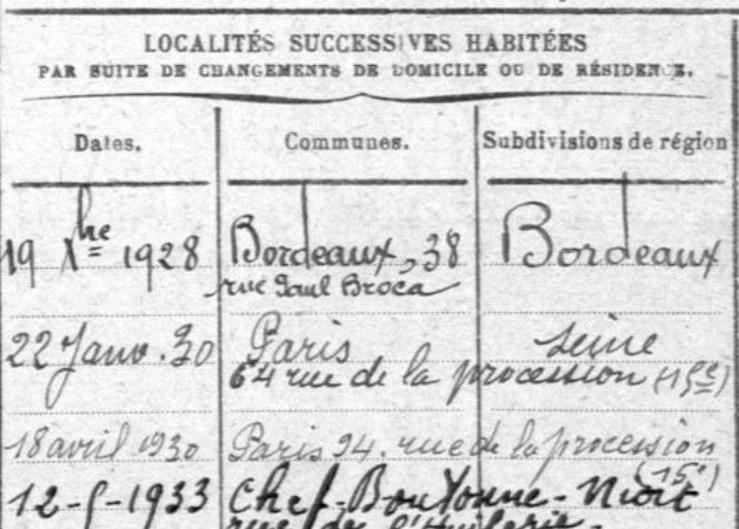 LOCALITÉS SUCCESSIVES HABITÉES
PAR SUITE DE CHANGEMENTS DE DOMICILE OU DE RÉSIDENCE.
Dates. Communes. Subdivisions de région
19 Xbre 1928 Bordeaux, 38 Bordeaux
rue Paul Broca
22 Janv. 30 Paris Seine
64 rue de la procession (15e)
18 avril 1930 Paris 94. rue de la procession
(15e)
12-5-1933 Chef-Boutonne - Niort
rue de l'Huilerie